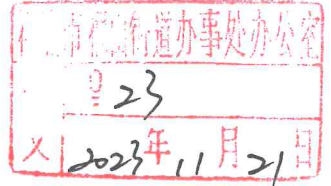 市街道办事处办公室
号 23
文 2023年11月21日